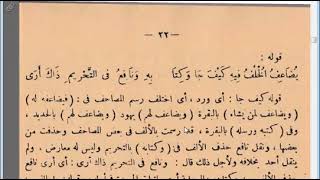 — ٢٢ —
قوله :
يُضَاعِفُ الْخُلْفُ فِيهِ كَيْفَ جَا وَكِتَا بِهِ وَنَافِعُ فِى التَّحْرِيمِ ذَاكَ أَرَى
قوله كيف جا : أى ورد ، أى اختلف رسم المصاحف فى : ( فيضاعفه له )
( ويضاعف لمن يشاء ) بالبقرة ، ( ويضاعف لهم ) بهود ( ويضاعف لهم ) بالحديد ،
و فى ( كتبه ورسله ) بالبقرة ، رسمت بالألف فى بعض المصاحف وحذفت من
بعضها ، ونقل نافع حذف الألف فى ( وكتابه ) بالتحريم وليس له معارض ، ولم
ينقل أحد بخلافه ولأجل ذلك قال : ونافع فى التحريم ذاك أرى : أى أرى نافع